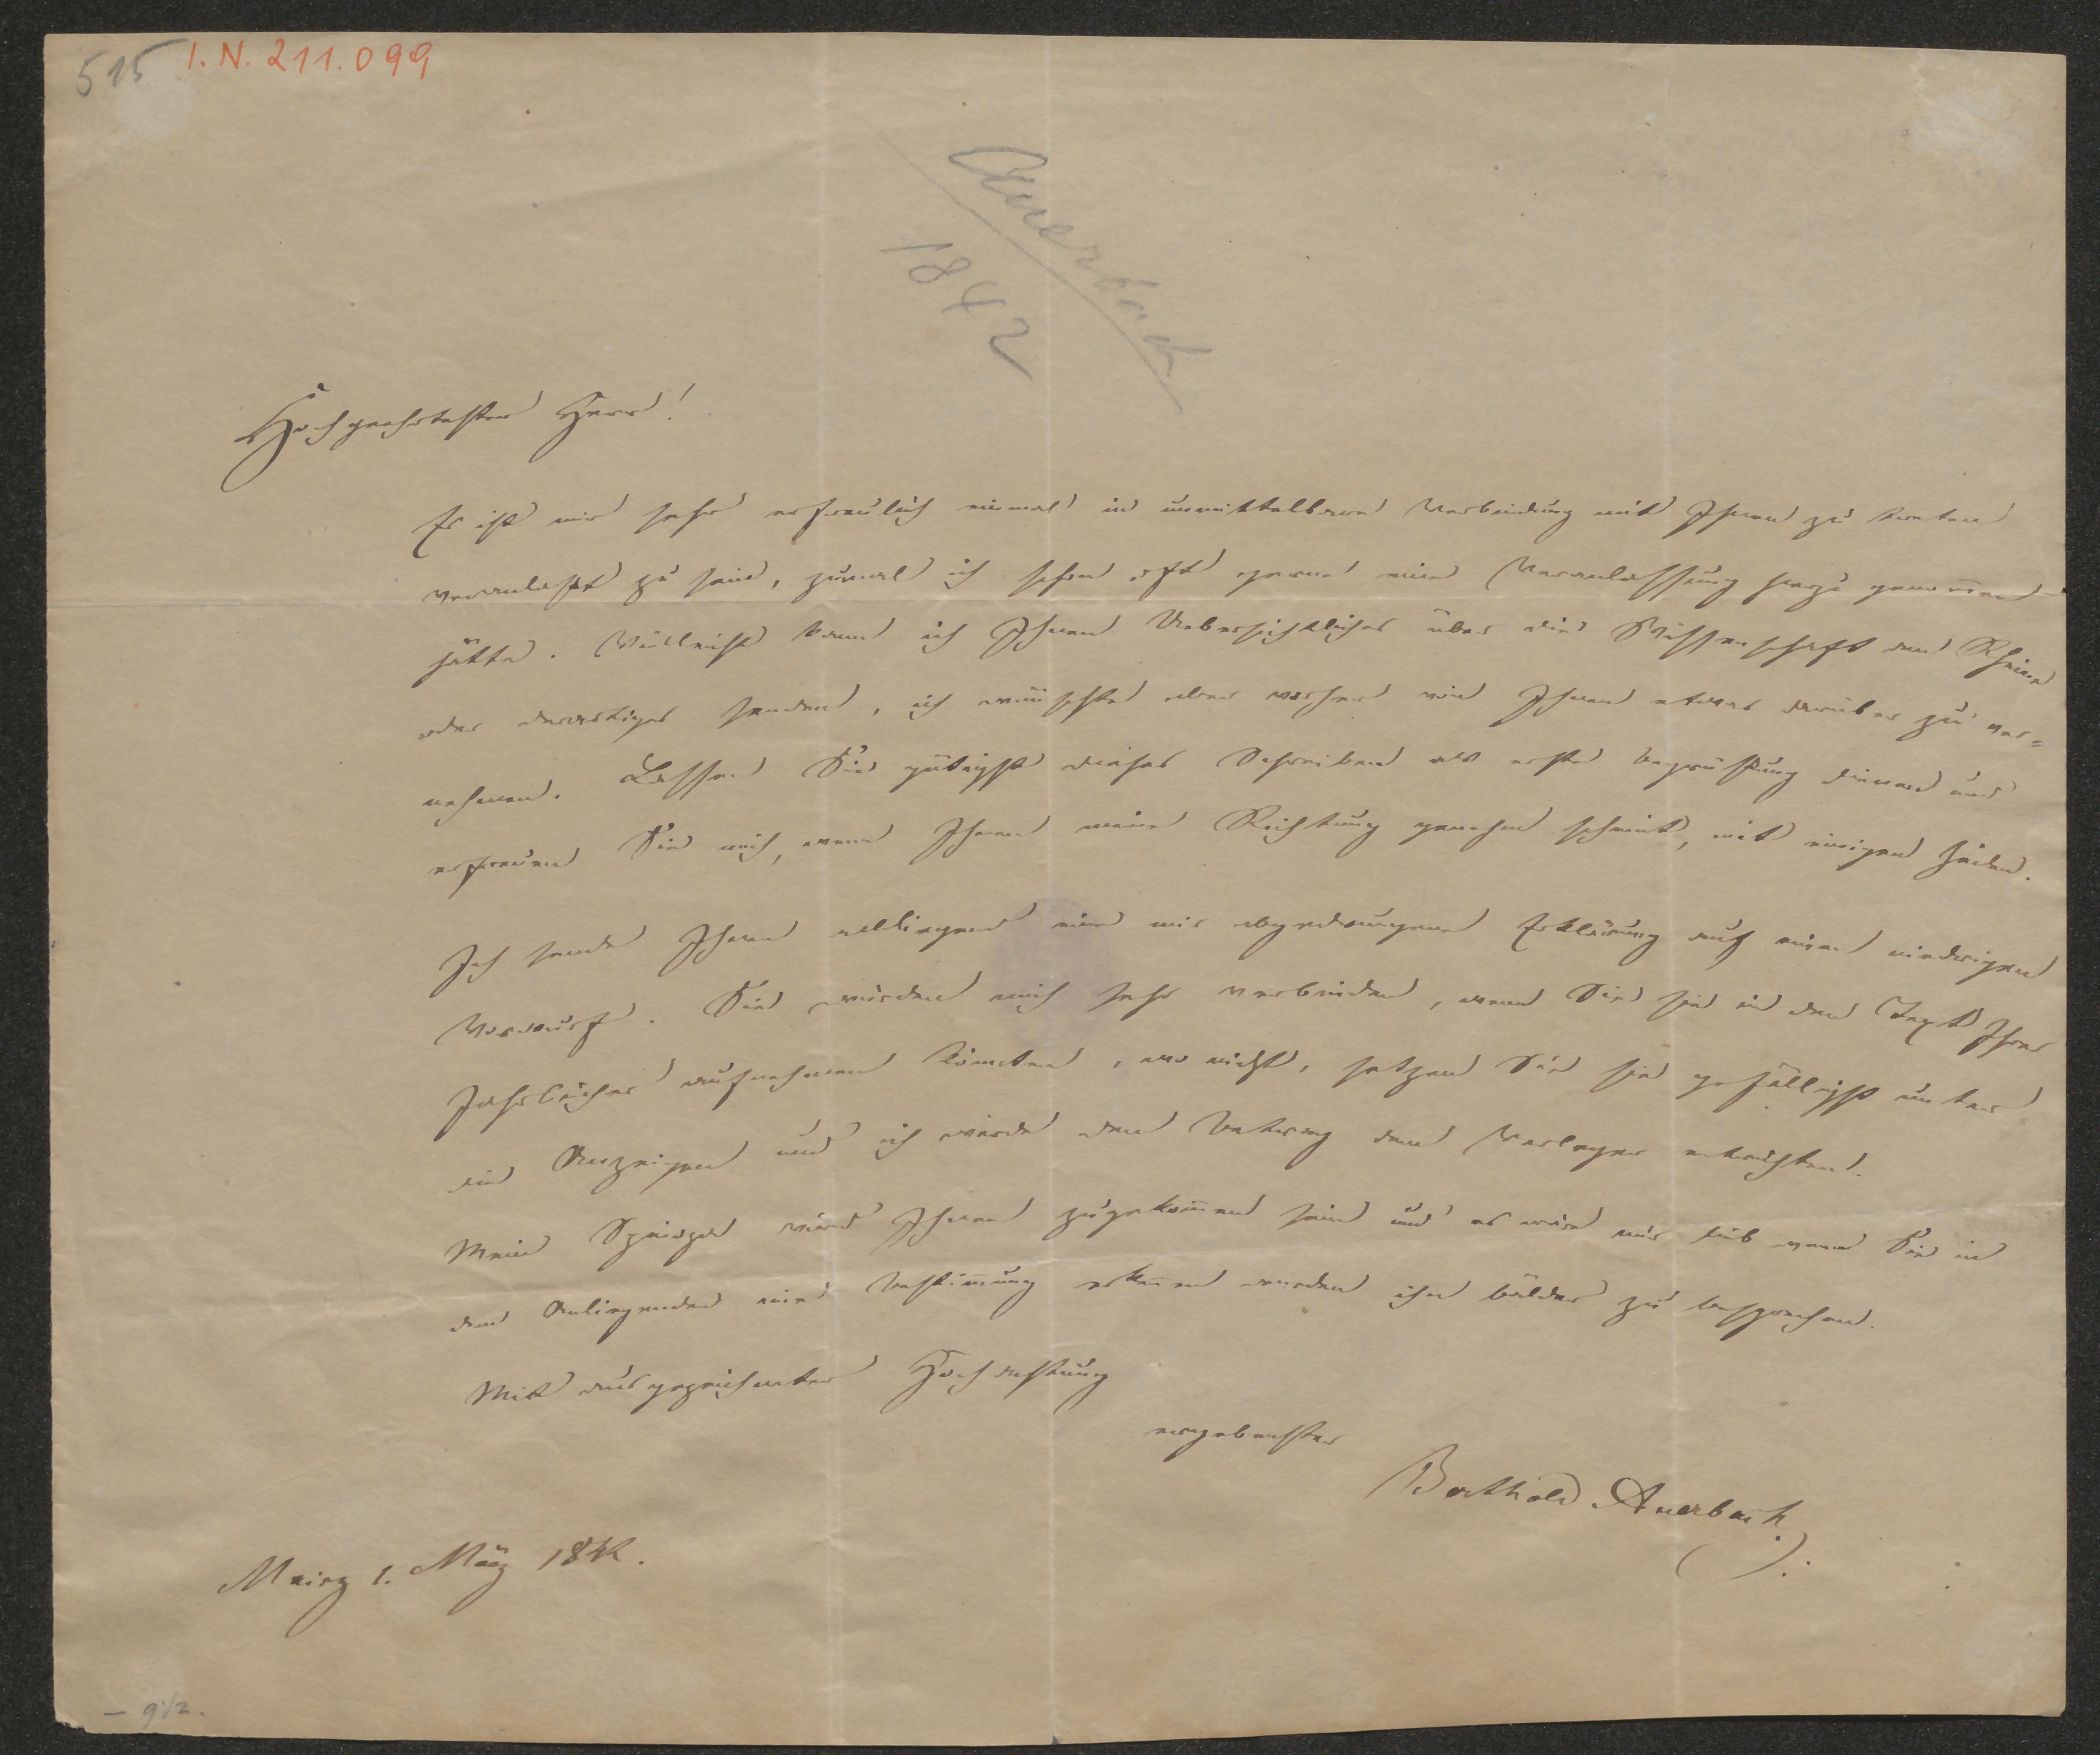 515 I.N. 211.099
Auerbach
1842
Hochgeehrtester Herr!
Es ist mir sehr erfreulich einmal in unmittelbare Verbindung mit Ihnen zu treten
veranlaßt zu sein, zumal ich schon oft gerne eine Veranlassung hierzu genom̄en
hätte. Vielleicht kann ich Ihnen Uebersichtliches über die Wissenschaft am Rheine
oder derartiges senden, ich wünschte aber vorher von Ihnen etwas darüber zu ver=
nehmen. Lassen Sie gütigst dieses Schreiben als erste Begrüßung dienen und
erfreuen Sie mich, wenn Ihnen meine Richtung genehm scheint, mit einigen Zeilen.
Ich sende Ihnen anliegend eine mir abgedrungene Erklärung auf einen niedrigen
Vorwurf. Sie würden mich sehr verbinden, wenn Sie sie in den Text Ihrer
Jahrbücher aufnehmen könnten, wo nicht, setzen Sie sie gefälligst unter
die Anzeigen und ich werde den Betrag dem Verleger entrichten.
Mein Spinoza wird Ihnen zugekom̄en sein und es wäre mir lieb wenn Sie in
dem Anliegenden eine Bestim̄ung erken̄en würden ihn bälder zu besprechen.
Mit ausgezeichneter Hochachtung
ergebenster
Berthold Auerbach.
Mainz 1. März 1842.
— 9 1/2.